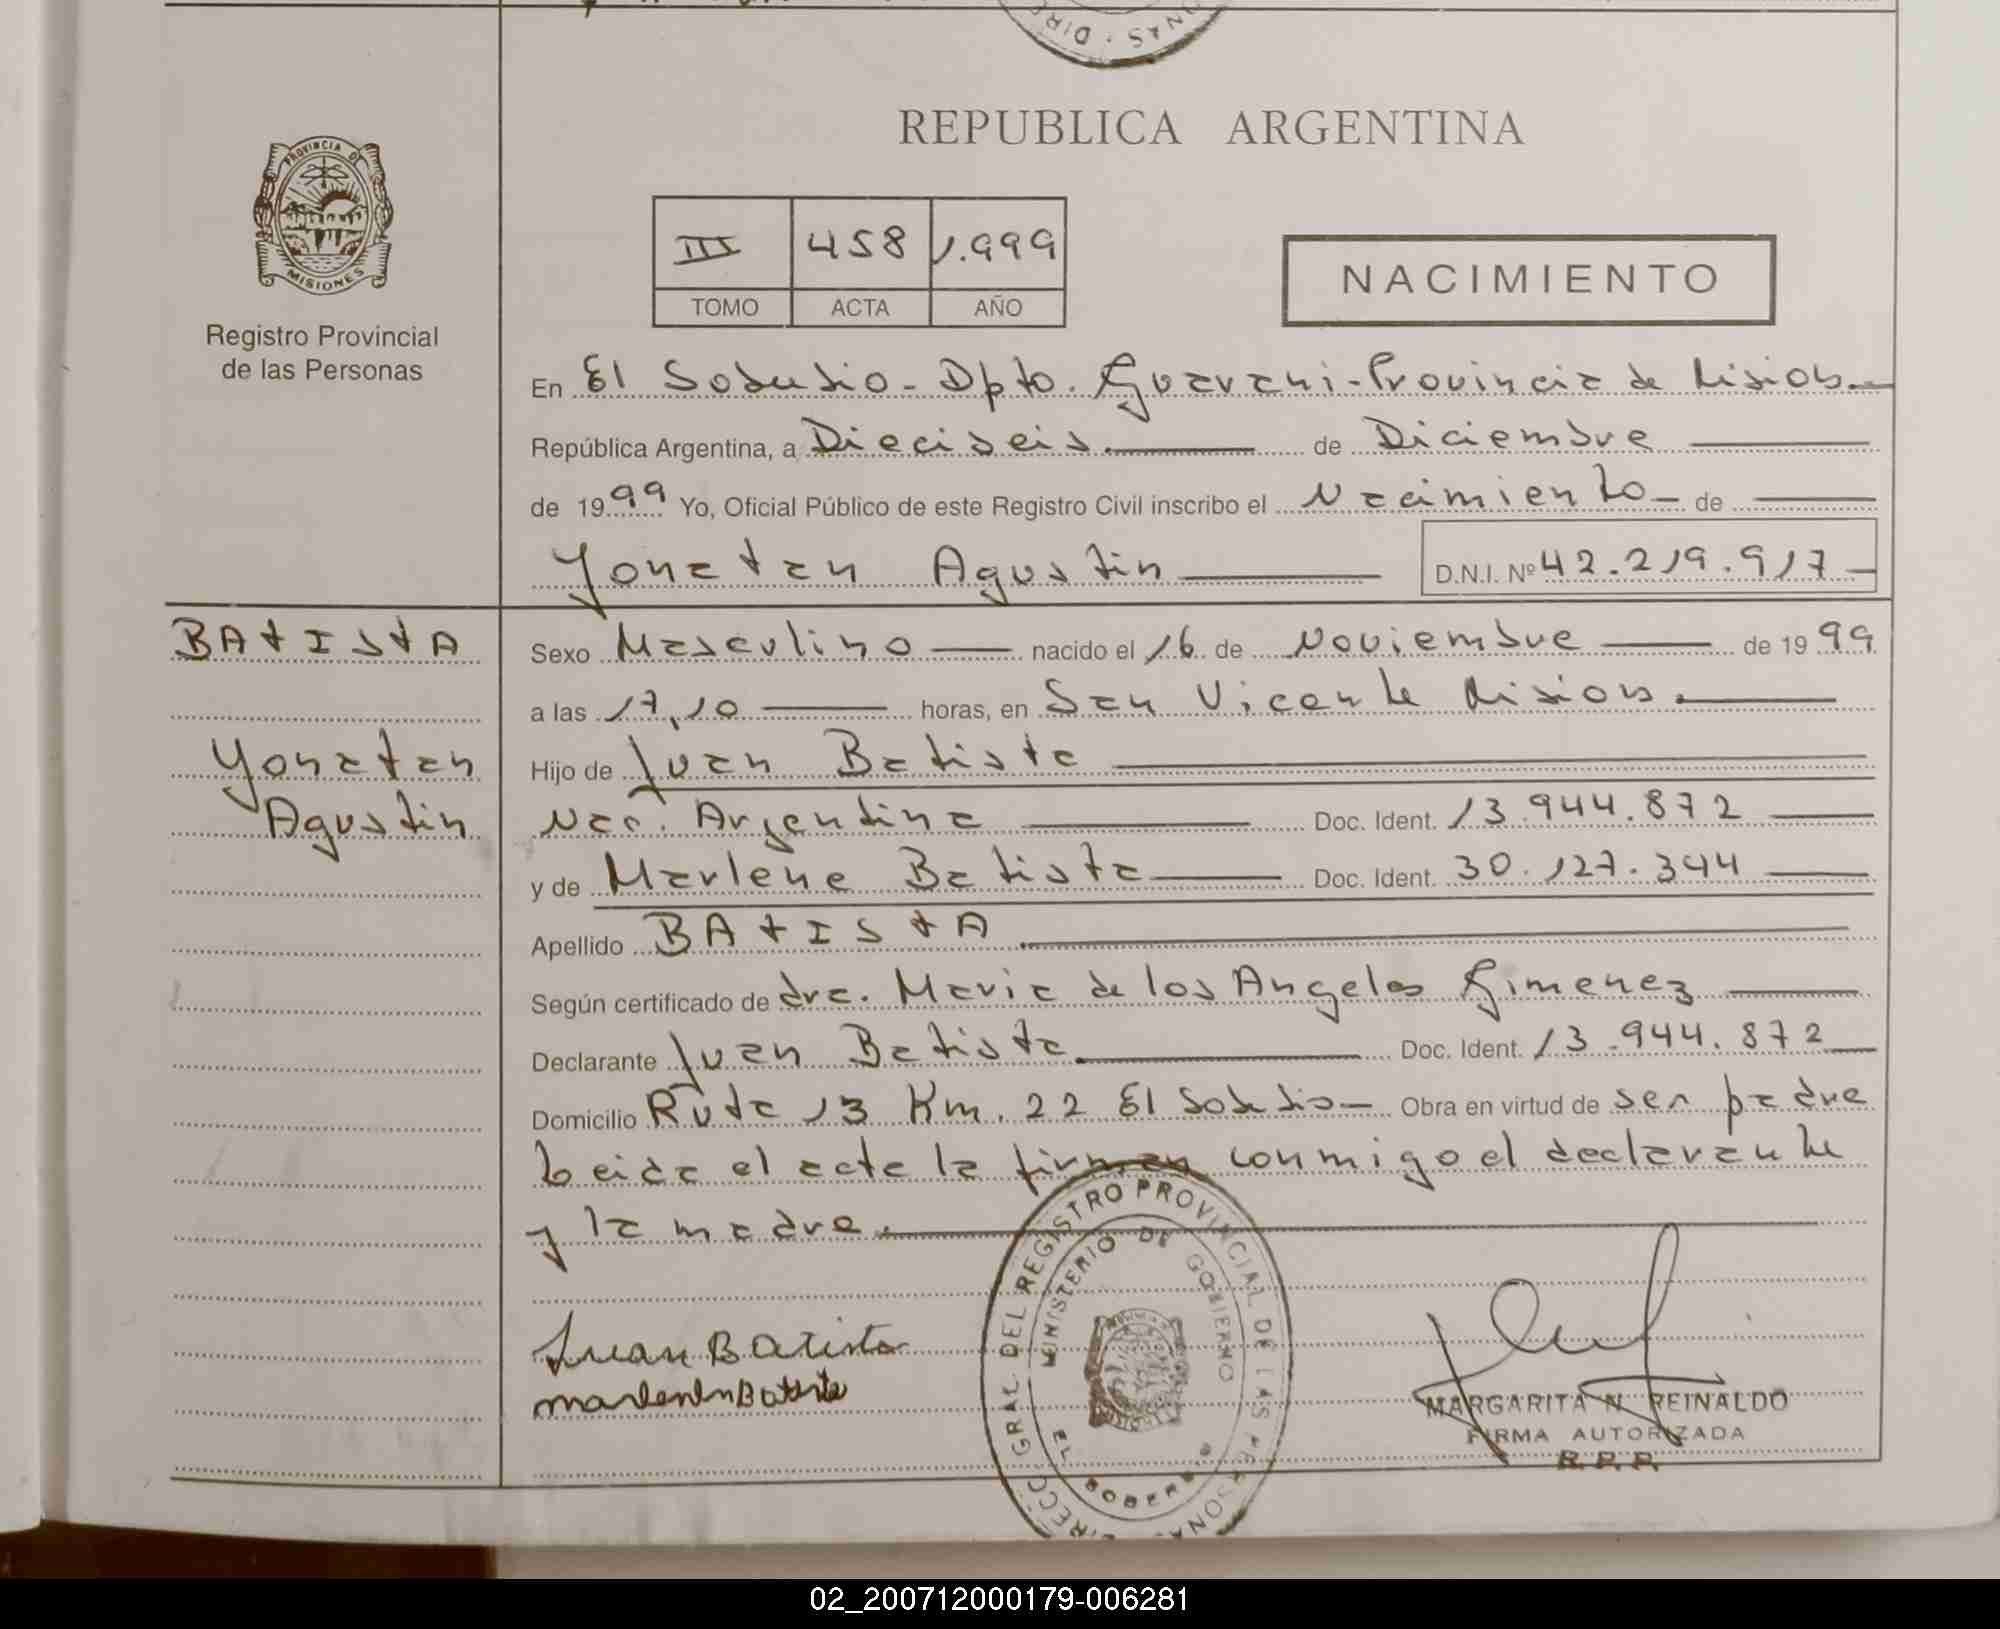 DIRE · NAS
REPUBLICA ARGENTINA
PROVINCIA DE
MISIONES
Registro Provincial
de las Personas
III 458 1.999
TOMO ACTA AÑO
NACIMIENTO
En El Soberbio - Dpto. Guarani - Provincia de Misiones
República Argentina, a Dieciseis. de Diciembre
de 1999 Yo, Oficial Público de este Registro Civil inscribo el Nacimiento de
Yonatan Agustin D.N.I. Nº 42.219.917
BATISTA
Yonatan
Agustin
Sexo Masculino nacido el 16 de Noviembre de 1999
a las 17,10 horas, en San Vicente Misiones.
Hijo de Juan Batista
Nac. Argentina Doc. Ident. 13.944.872
y de Marlene Batista Doc. Ident. 30.127.344
Apellido BATISTA
Según certificado de dra. Maria de los Angeles Gimenez
Declarante Juan Batista Doc. Ident. 13.944.872
Domicilio Ruta 13 Km. 22 El Soberbio Obra en virtud de ser padre
Leida el acta la firman conmigo el declarante
y la madre.
Juan Batista
DIRECC. GRAL. DEL REGISTRO PROVINCIAL DE LAS PERSONAS
MINISTERIO DE GOBIERNO
EL SOBERBIO
MARGARITA N. REINALDO
FIRMA AUTORIZADA
R.P.P.
02_200712000179-006281